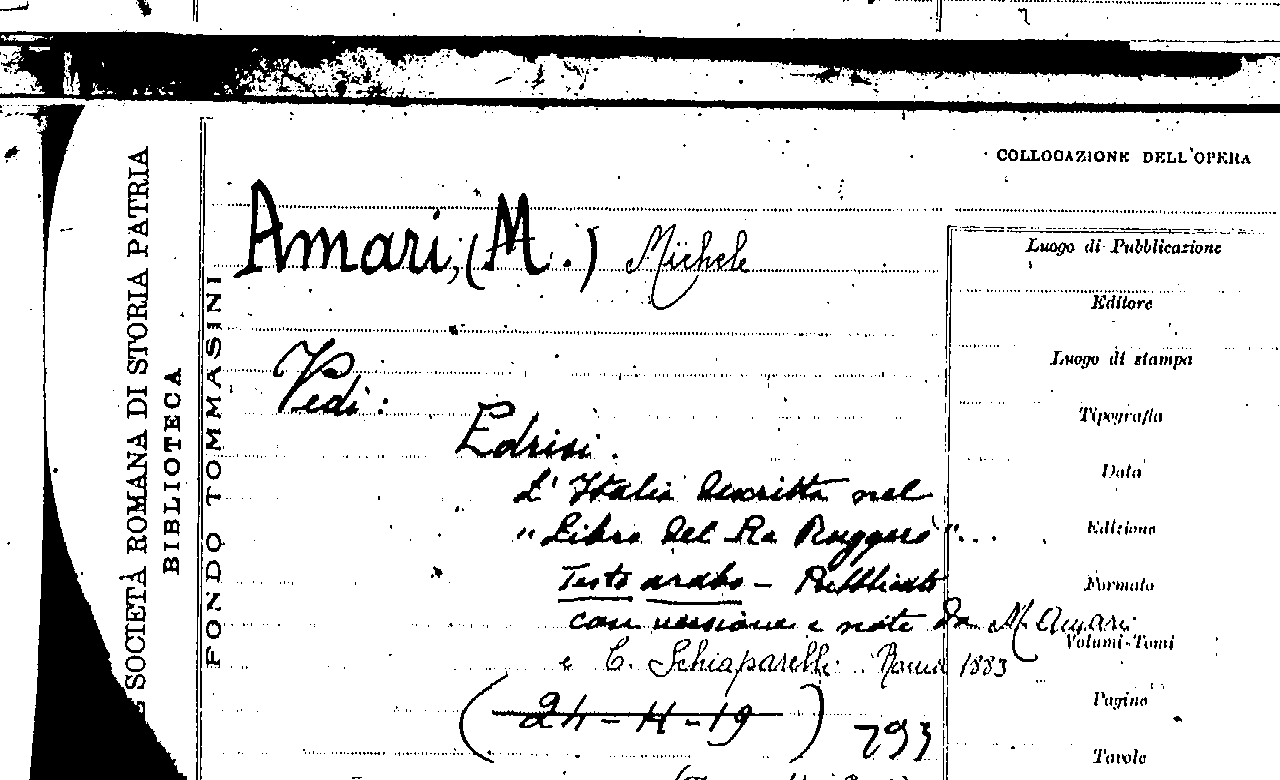 COLLOCAZIONE DELL'OPERA
SOCIETÀ ROMANA DI STORIA PATRIA
BIBLIOTECA
FONDO TOMMASINI
Amari, (M.) Michele
Vedi:
Edrisi.
L'Italia descritta nel
"Libro del Re Ruggero"...
Testo arabo - Pubblicato
con versione e note da M. Amari
e C. Schiaparelli. Roma 1883
(24-H-19) 793
Luogo di Pubblicazione
Editore
Luogo di stampa
Tipografia
Data
Edizione
Formato
Volumi-Tomi
Pagine
Tavole